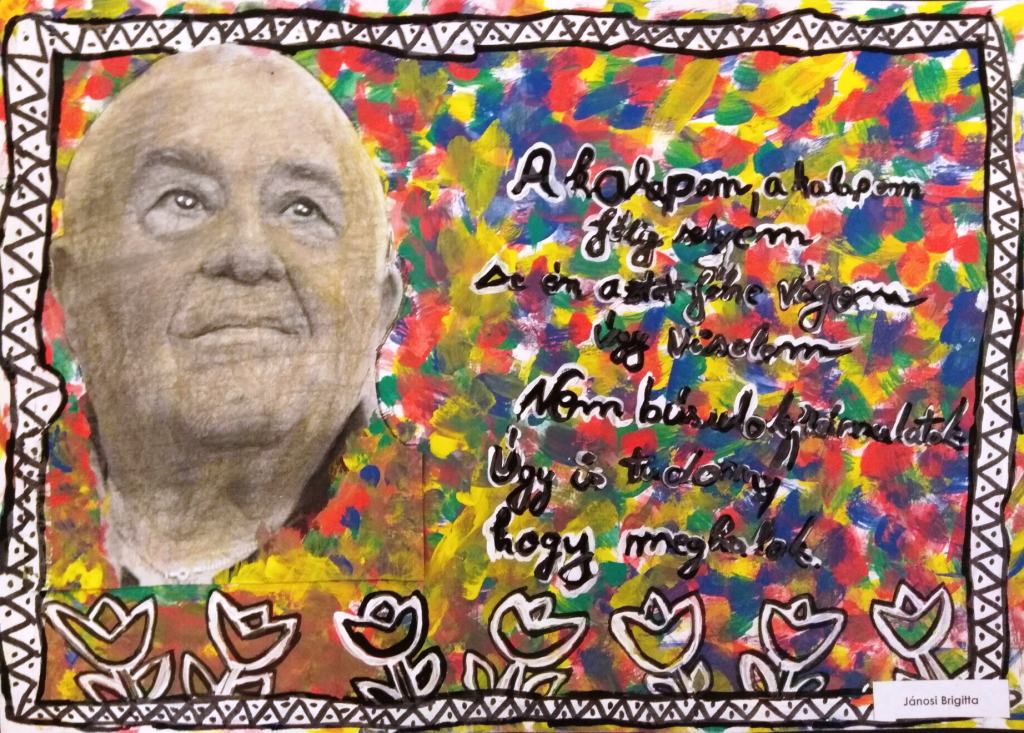 A kalapom, a kalapom
félig selyem
De én azt félre vágom
Úgy viselem
Nem búsulok, mulatok
Úgy is tudom,
hogy meghalok.
Jánosi Brigitta